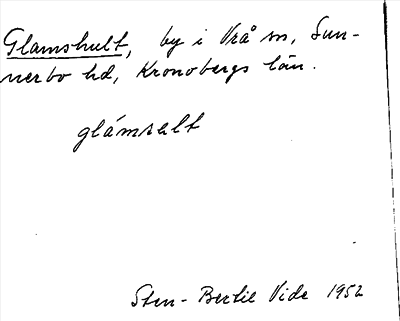 Glamshult, by i Vrå sn, Sun-
nerbo hd, Kronobergs län.
glámsalt
Sten-Bertil Vide 1952